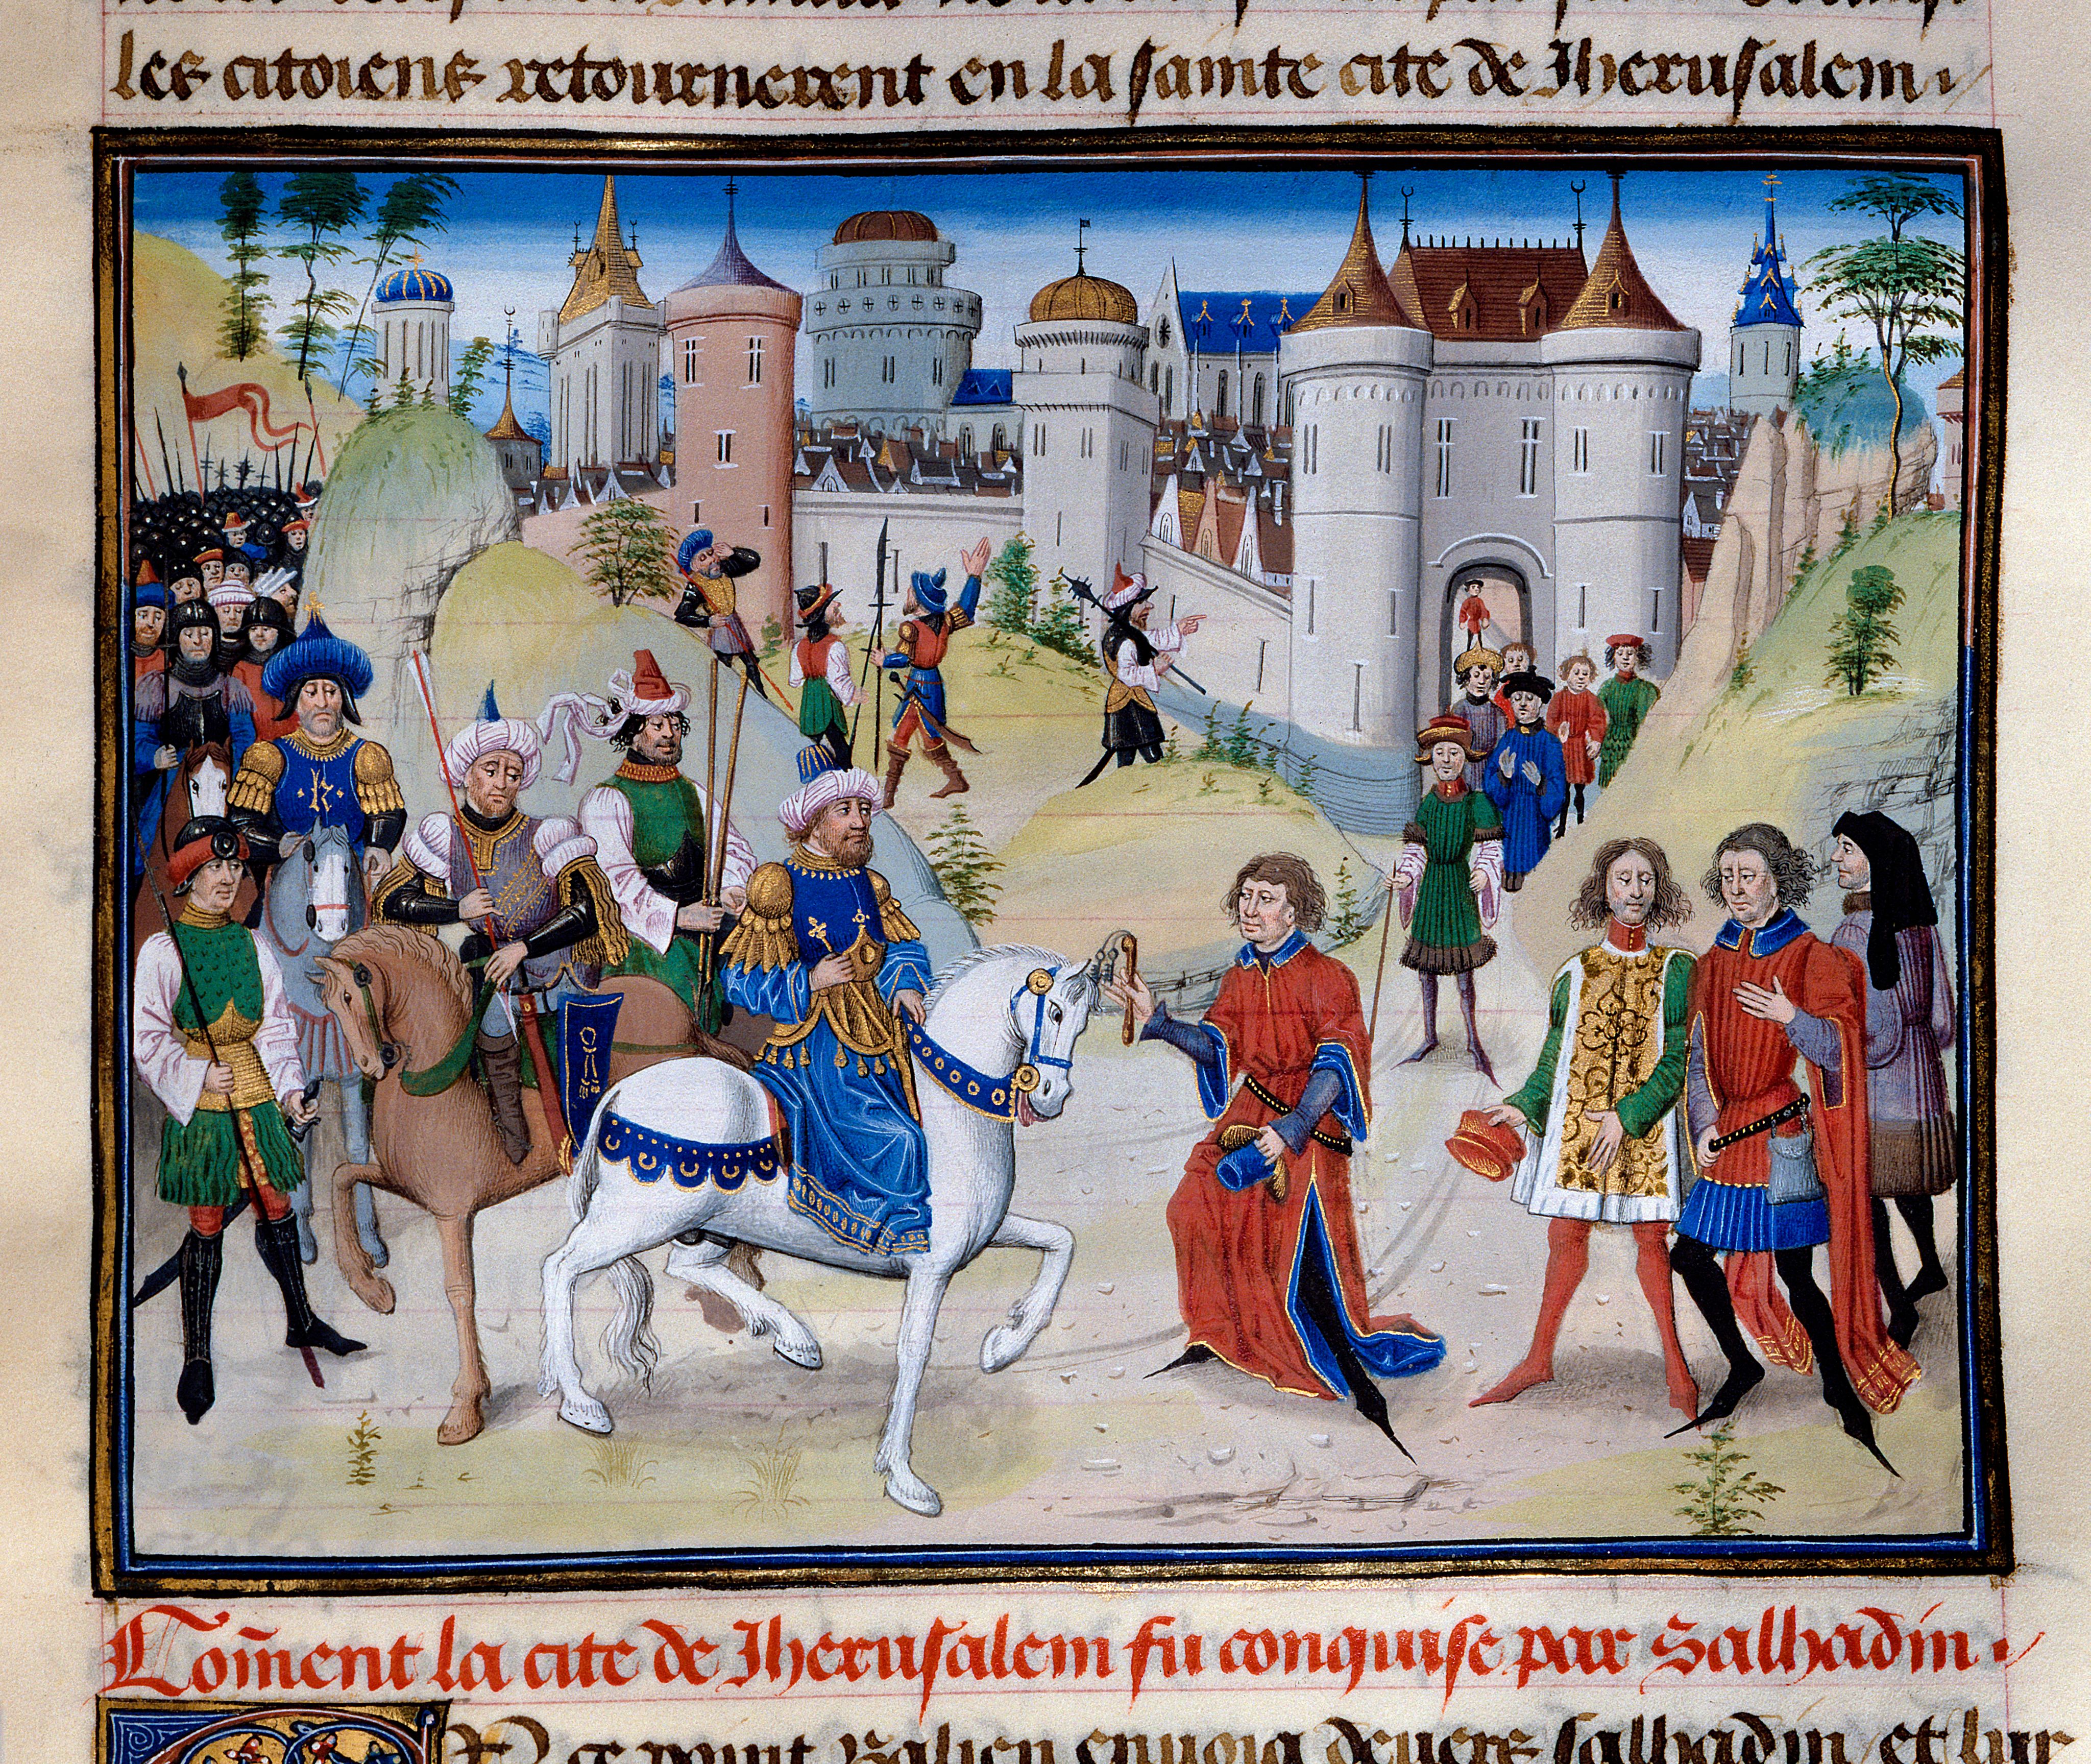 les citoiens retournerent en la sainte cite de Jherusalem.
Com̃ent la cite de Jherusalem fu conquise par Salhadin.
Balien envoia devers salhadin et lui